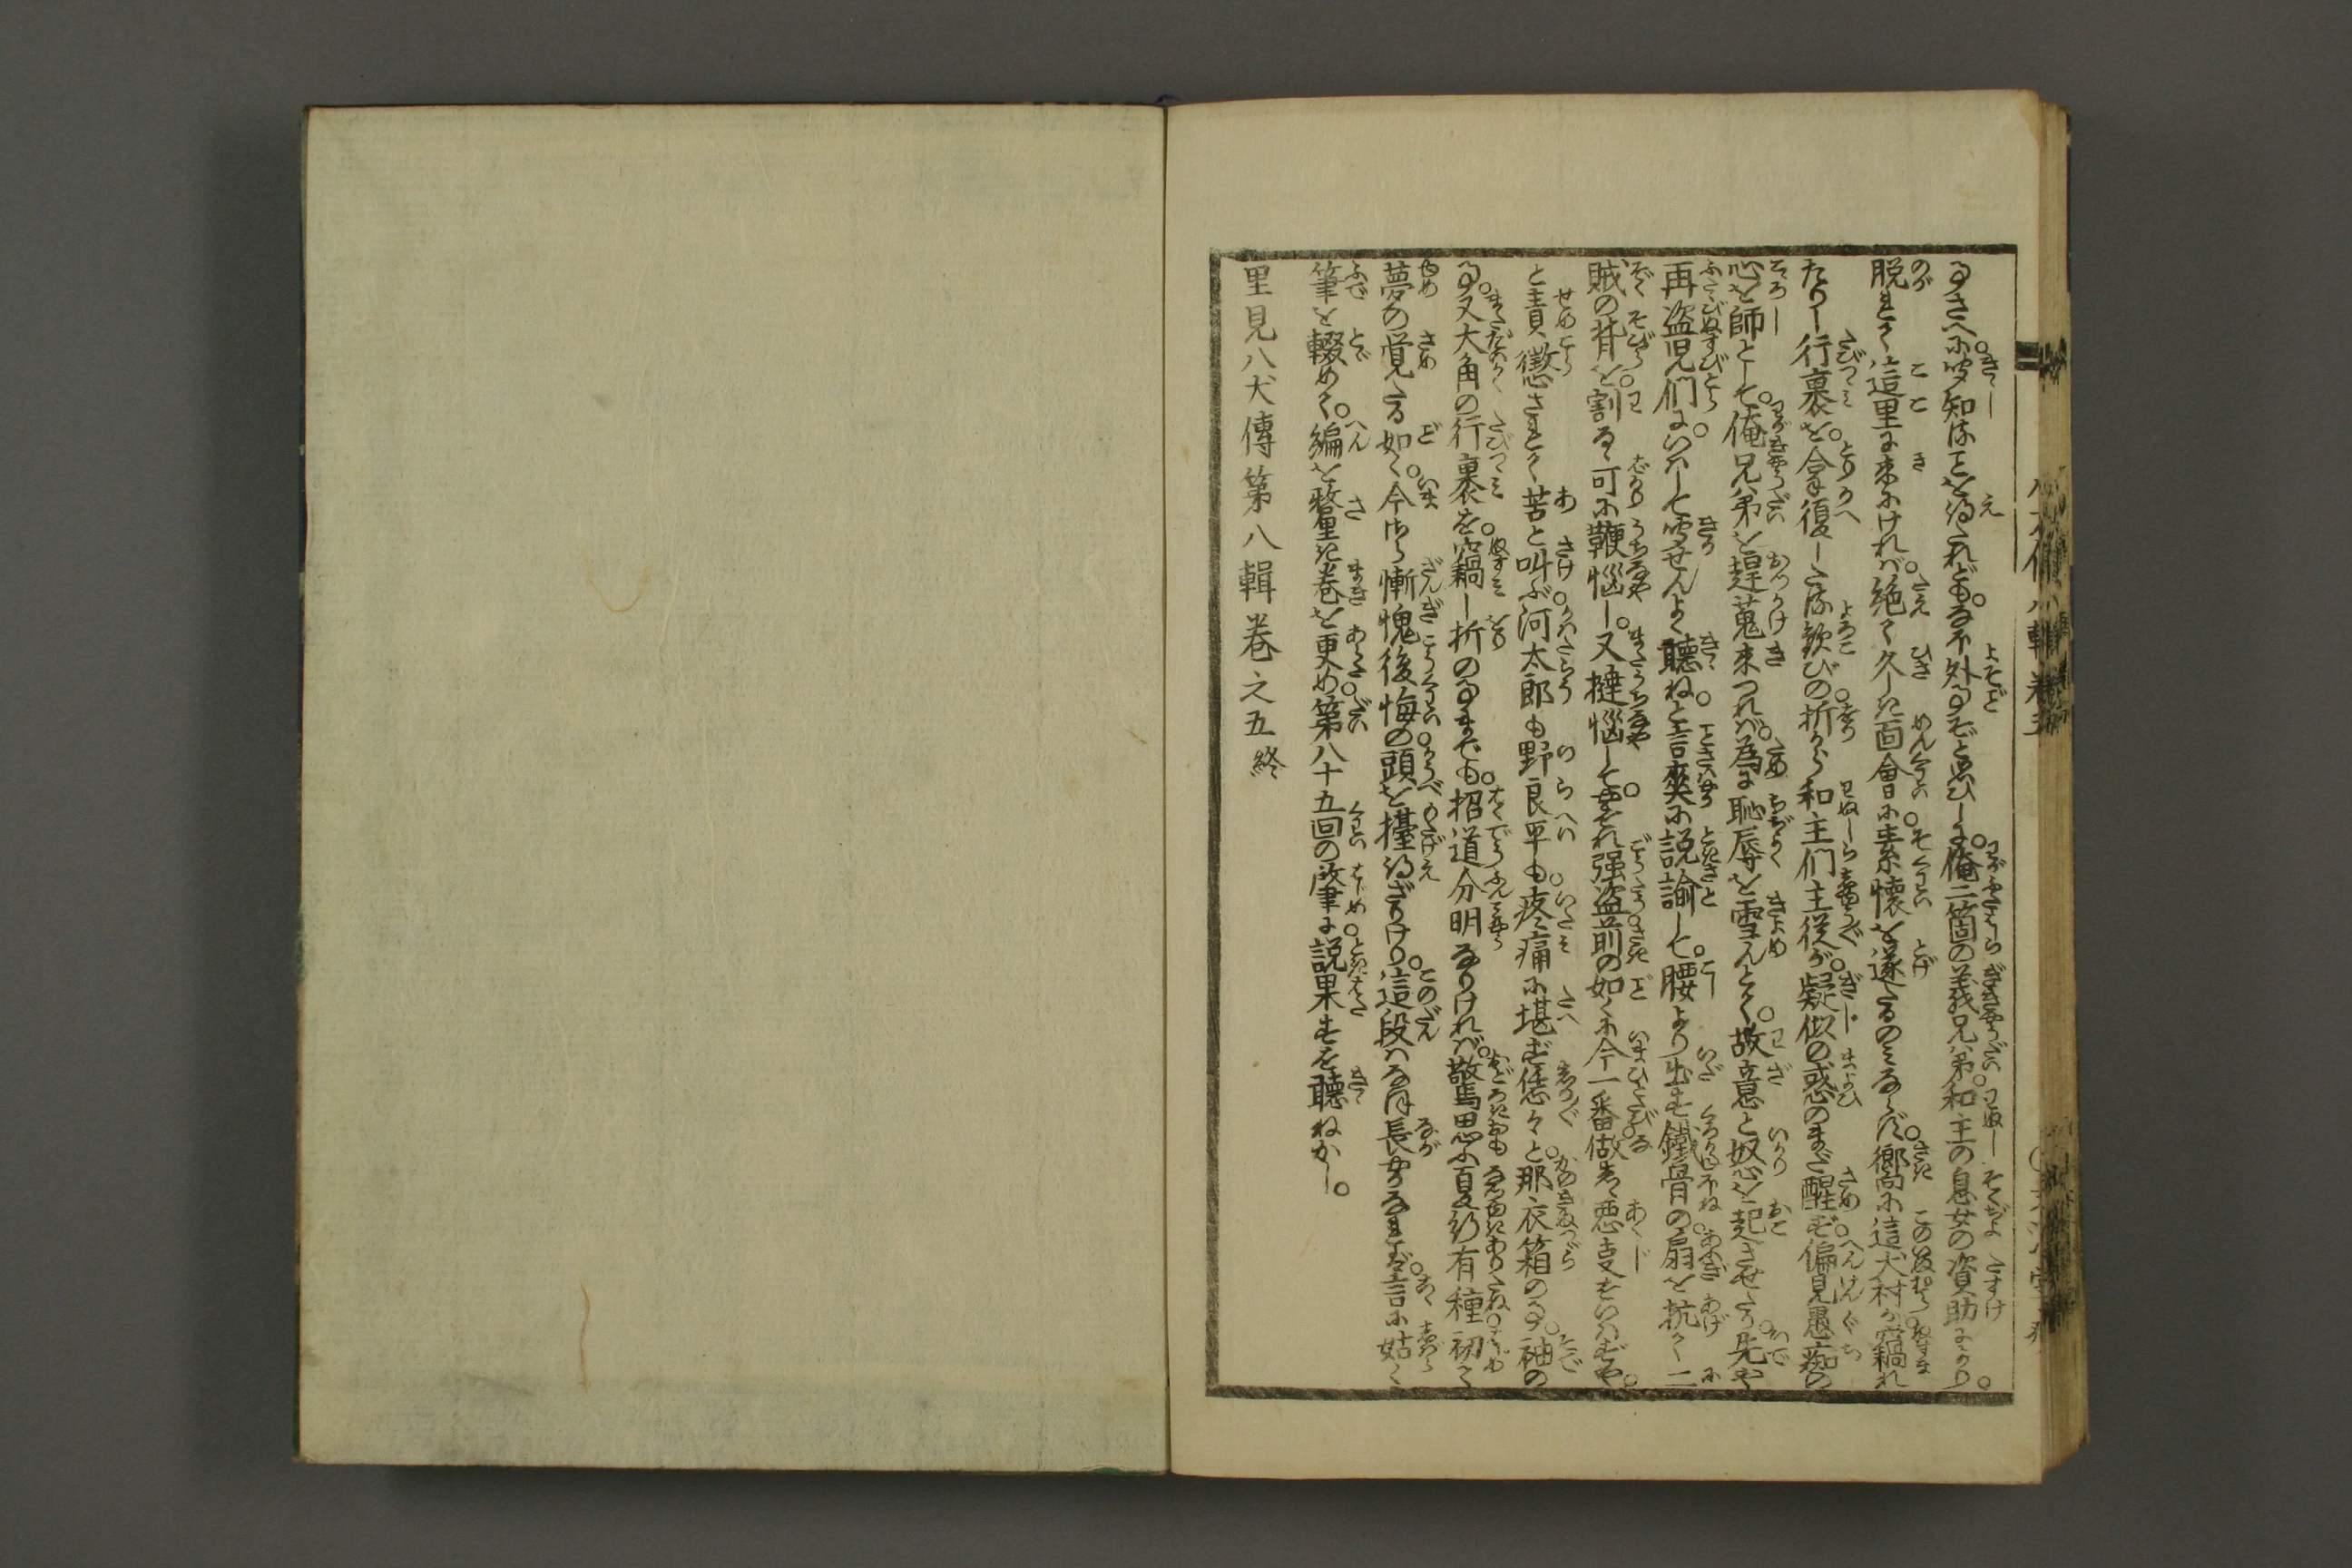 事さへに聞知ることを得たれども。なほ外事ぞと思ひしに。俺二箇の義兄弟。和主の息女の資助により。
脱れて這里に来にければ。絶て久しき面會に。素懐を遂たるのみならず。嚮に這犬村が竊れ
たりし行裹を。拿復したる歓びの。折から和主們主従が。疑似の惑のまだ醒ず。偏見愚痴の
心を師として。俺兄弟を趕蒐来つれば。為に恥辱を雪んとて。故意と怒を起させたり。先や
再盗児們にいはして聞せん。よく聴ねと言爽に説諭して。腰より出す鐵骨の扇を抗て二
賊の背を。割るゝ可に鞭悩し。又撻悩して。やをれ強盗。前の如くに今一番。做しゝ悪事をいはずや。
と責懲されて苦と叫ぶ。河太郎も野良平も。疼痛に堪ず恁々と。那衣箱の事。袖の
事。又大角の行裹を。竊し折の事までも。招道分明なりければ。驚思ふ夏行有種。初て
夢の覚たる如く。今さら慚愧後悔の。頭を擡得ざりけり。這段はなほ長やかなれば。言に姑く
筆を輟めて。編を釐き巻を更め。第八十五回の肇に。説果すを聴ねかし。
里見八犬傳第八輯巻之五終